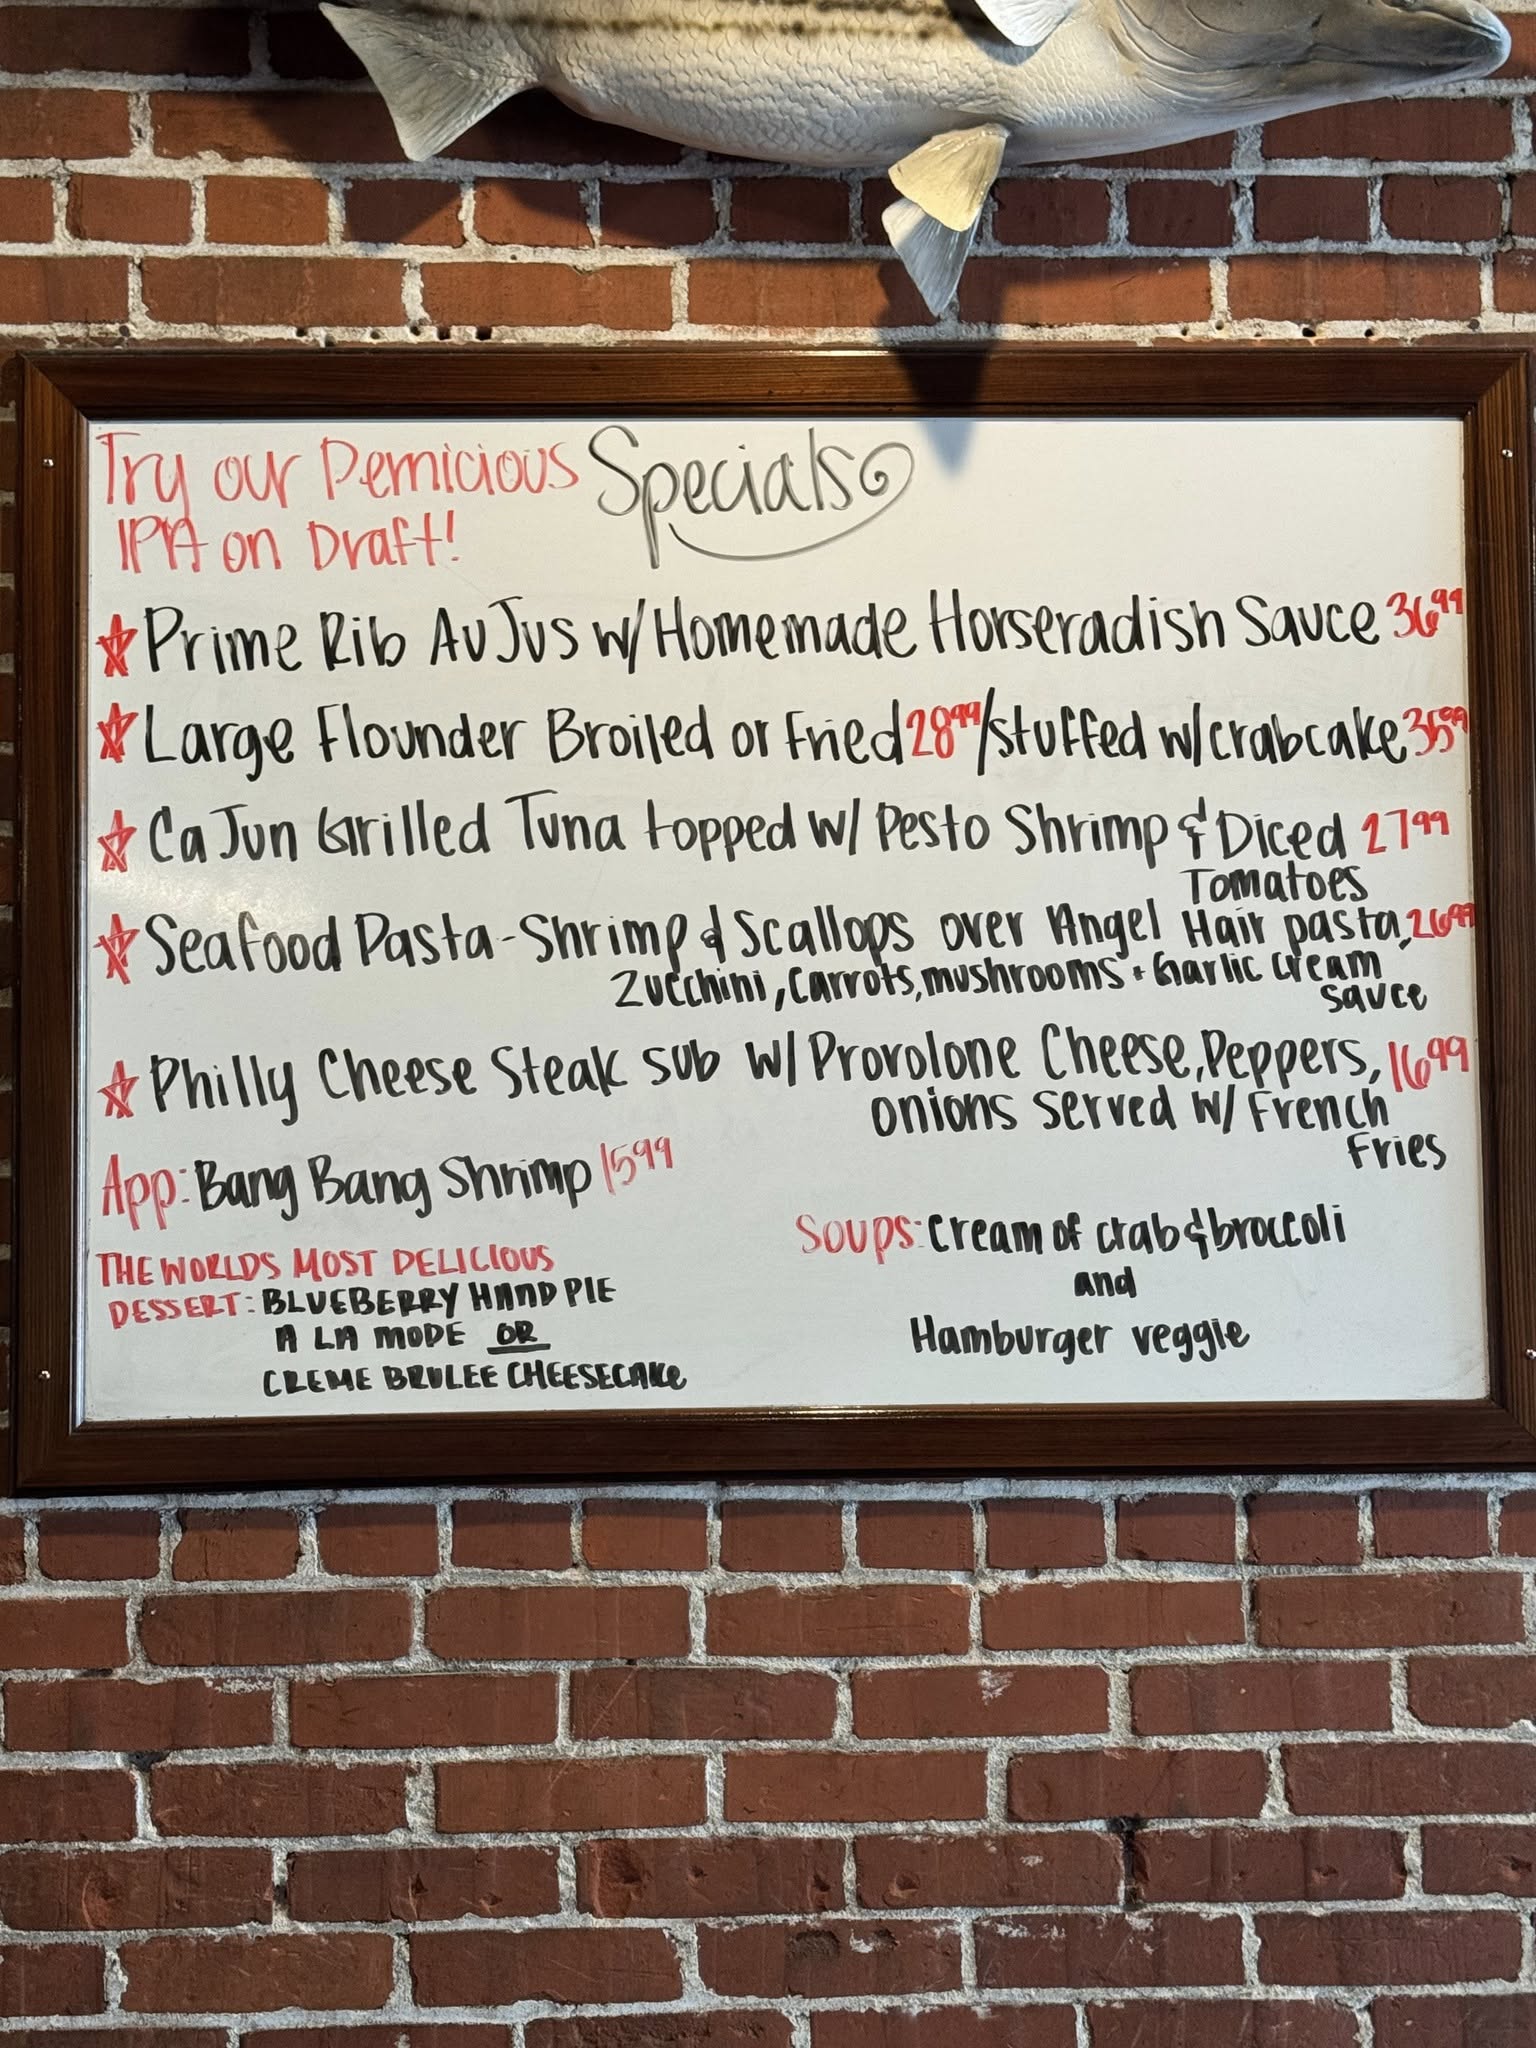 Try our Pernicious
IPA on Draft!
Specials
Prime Rib Au Jus w/ Homemade Horseradish Sauce 36.99
Large Flounder Broiled or Fried 28.99/stuffed w/crabcake 35.99
Cajun Grilled Tuna topped w/ Pesto Shrimp & Diced 27.99
Tomatoes
Seafood Pasta - Shrimp & Scallops over Angel Hair pasta, 26.99
Zucchini, Carrots, mushrooms + Garlic cream
sauce
Philly Cheese Steak sub w/ Provolone Cheese, Peppers, 16.99
onions served w/ French
Fries
App: Bang Bang Shrimp 15.99
THE WORLDS MOST DELICIOUS
DESSERT: BLUEBERRY HAND PIE
A LA MODE OR
CREME BRULEE CHEESECAKE
Soups: Cream of crab & broccoli
and
Hamburger veggie